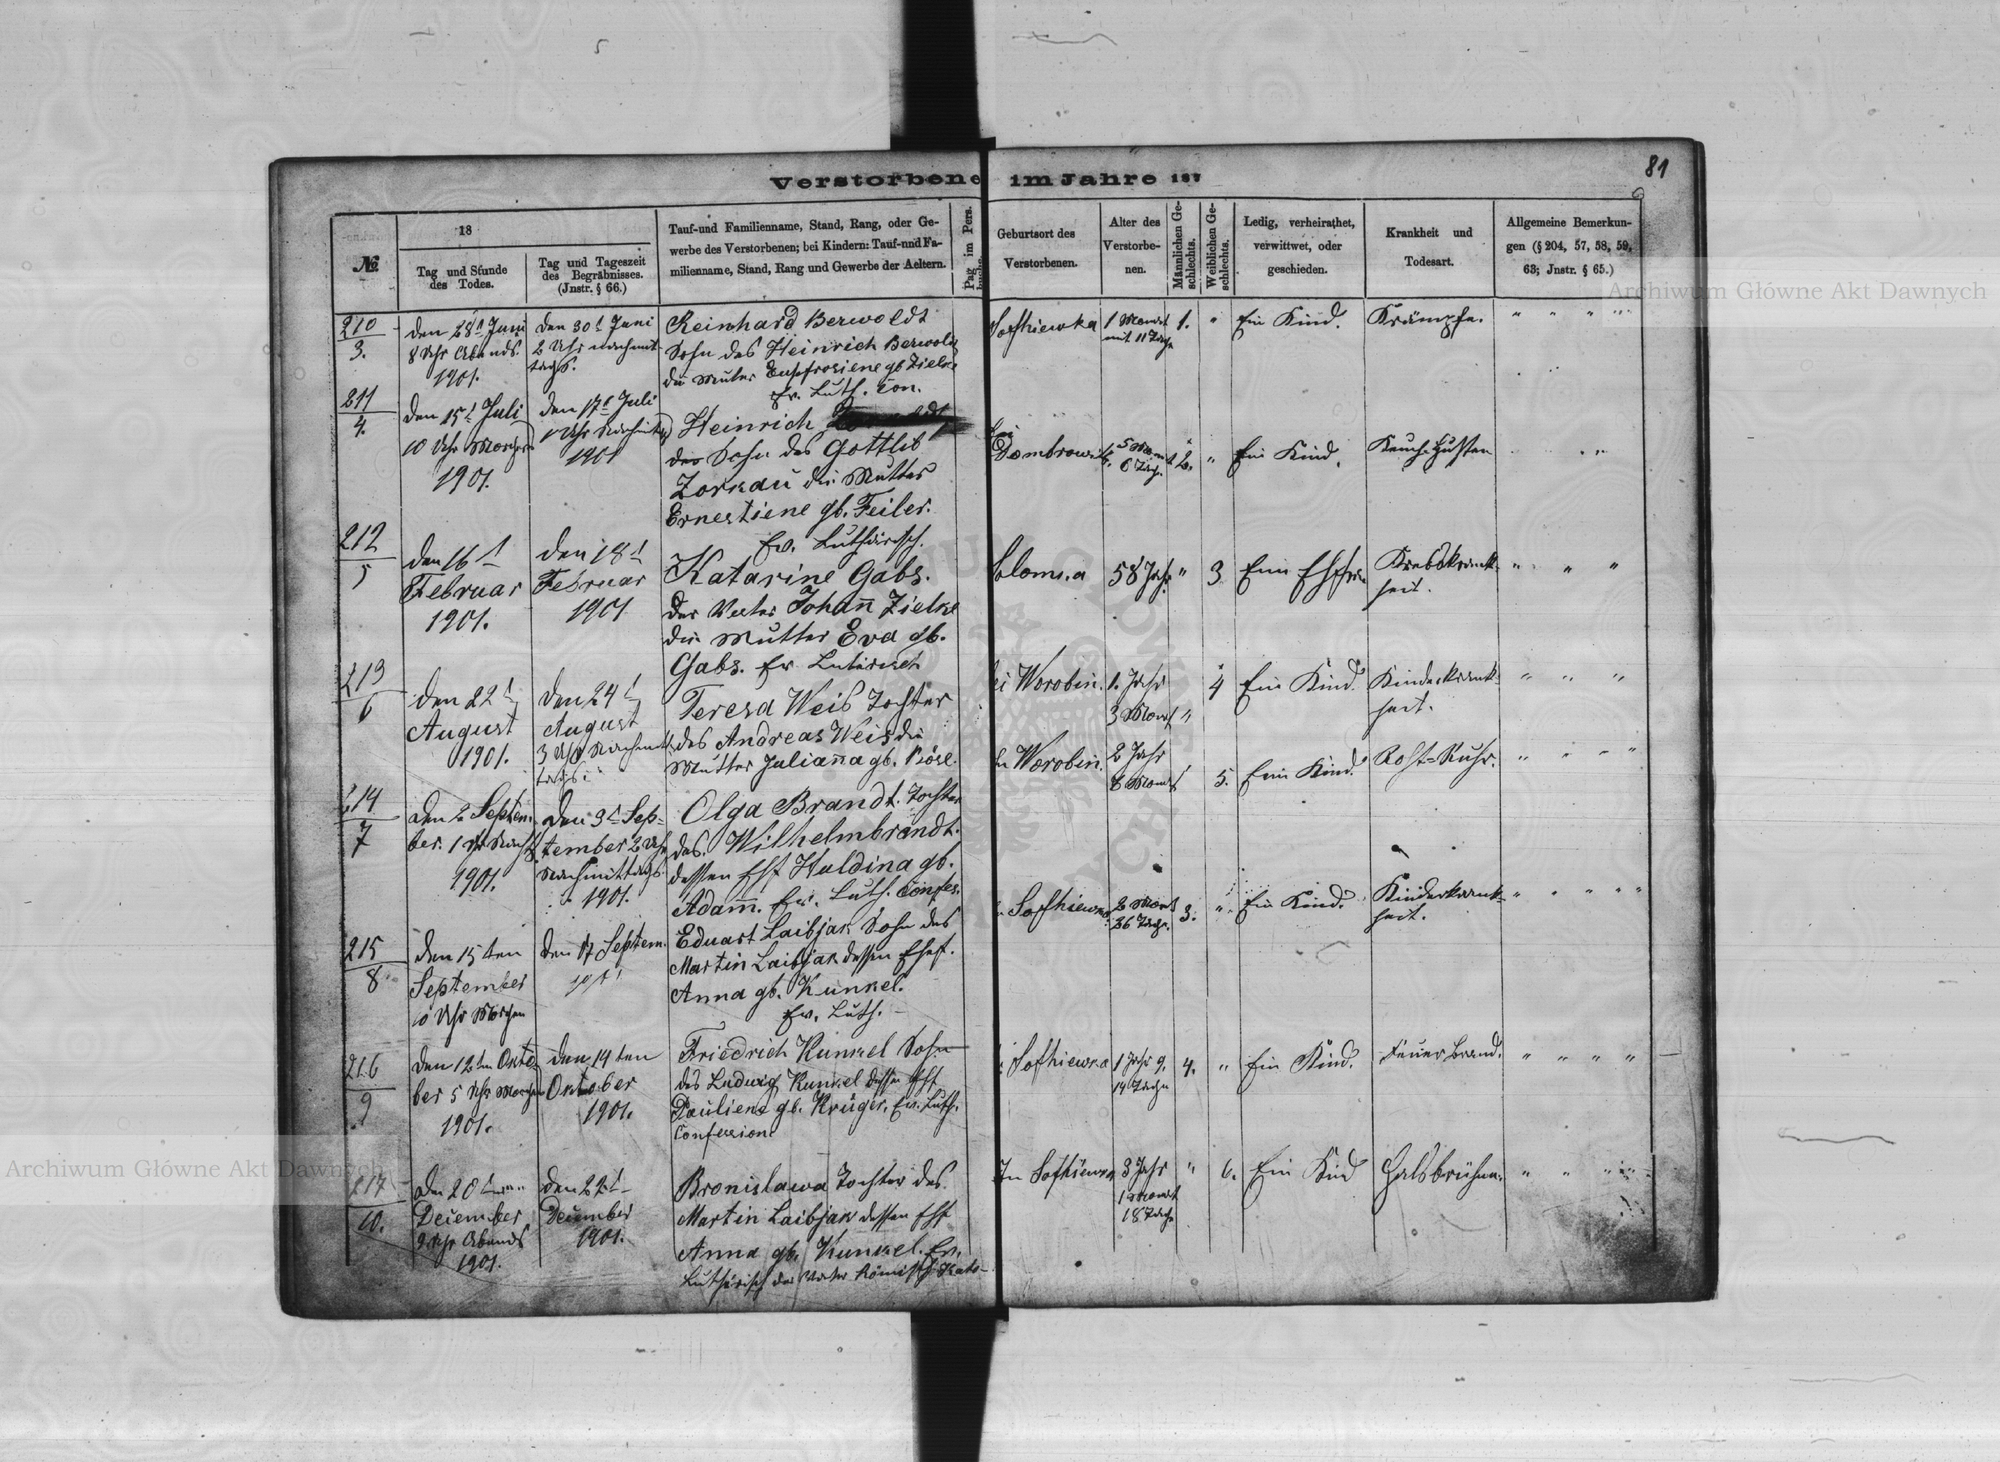 81
Verstorbene im Jahre 187
№
18
Tag und Stunde
des Todes.
Tag und Tageszeit
des Begräbnisses.
(Jnstr. § 66.)
Tauf-und Familienname, Stand, Rang, oder Ge-
werbe des Verstorbenen; bei Kindern: Tauf-und Fa-
milienname, Stand, Rang und Gewerbe der Aeltern.
Pag im Pers.
Geburtsort des
Verstorbenen.
Alter des
Verstorbe-
nen.
Männlichen Ge-
schlechts.
Weiblichen Ge-
schlechts.
Ledig, verheirathet,
verwittwet, oder
geschieden.
Krankheit und
Todesart.
Allgemeine Bemerkun-
gen (§ 204, 57, 58, 59,
63; Jnstr. § 65.)
210
3.
den 28t Juni
8 Uhr Abends
1901.
den 30t Juni
2 Uhr nachmit
tags.
Reinhard Berwoldt
Sohn des Heinrich Berwoldt
die Muter Eupfrosiene gb Zielke
Ev. Luth. Con.
Sofhiewka
1 Monat
mit 11 Tage
1.
"
Ein Kind.
Krämpfe.
" " " "
211
4.
den 15t Juli
10 Uhr Morgens
1901.
den 17t Juli
1 Uhr Nachmittag
1901
Heinrich
der Sohn des Gottlib
Zornau die Mutter
Ernestiene gb. Feiler.
Ev. Luthärisch.
bei
Dombrowitz.
5 Monat
6 Tage.
2.
"
Ein Kind.
Keuch-Husten
" "
212
5
den 16t
Februar
1901.
den 18t
Februar
1901
Katarine Gabs.
Der Vater Johann Zielke
die Mutter Eva gb.
Gabs. Ev Luterisch
58 Jahr
"
3
Eine Ehefrau
Krebskrank-
heit.
" " "
213
6
den 22t
August
1901.
den 24t
August
3 Uhr Nachmit
tags.
Teresa Weis Tochter
des Andreas Weis die
Mutter Julianna gb. Rösel.
bei Worobin.
1. Jahr
3 Monat
"
4
Ein Kind.
Kinderkrank-
heit.
" " "
214
7
den 2 Septem-
ber. 1 Uhr Nachts
1901.
den 3t Sep-
tember 2 Uhr
Nachmittags
1901.
Olga Brandt. Tochter
des. Wilhelmbrandt.
dessen Ehf Huldina gb.
Adamm. Ev. Luth. Confes.
In Worobin.
2 Jahr
8 Monat
5.
Ein Kind.
Roht-Ruhr.
" " " "
215
8
den 15 ten
September
10 Uhr Morgen
den 17 Septem.
1901
Eduart Laibjak Sohn des
Martin Laibjak dessen Ehef.
Anna gb. Kunkel.
Ev. Luth.
In Sofhiewka
2 Monat
26 Tage.
3.
"
Ein Kind.
Kinderkrank-
heit.
" " " " "
216
9
den 12ten Okto-
ber 5 Uhr Morgen
1901.
den 14 ten
Oktober
1901.
Friedrich Kunkel Sohn
des Ludwig Kunkel dessen Ehf
Pauliene gb. Krüger. Ev. Luth.
Confession.
Sofhiewka
1 Jahr 9.
14 Tage
4.
"
Ein Kind.
Feuer Brand.
" " " "
217
10.
den 20t
December
9 Uhr Abends
1901.
den 22t
December
1901.
Bronislawa Tochter des.
Martin Laibjak dessen Ehf
Anna gb. Kunkel. Ev.
Luthärisch der Vater Römisch Kato-
In Sofhiewka
3 Jahr
1 Monat
18 Tage
"
6.
Ein Kind
Halsbrühne.
" " " "
Archiwum Główne Akt Dawnych
Archiwum Główne Akt Dawnych